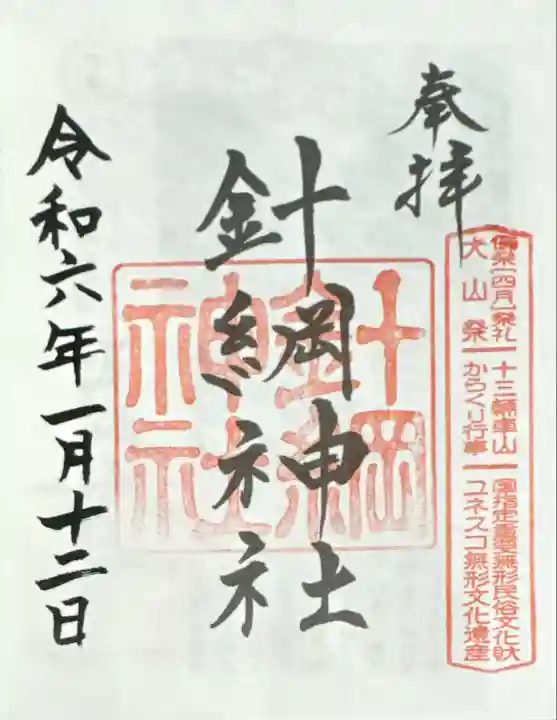 奉拝
[四月]祭礼 十三輌車山 国指定重要無形民俗文化財
犬山祭 からくり行事 ユネスコ無形文化遺産
針綱神社
針綱神社
令和六年一月十二日